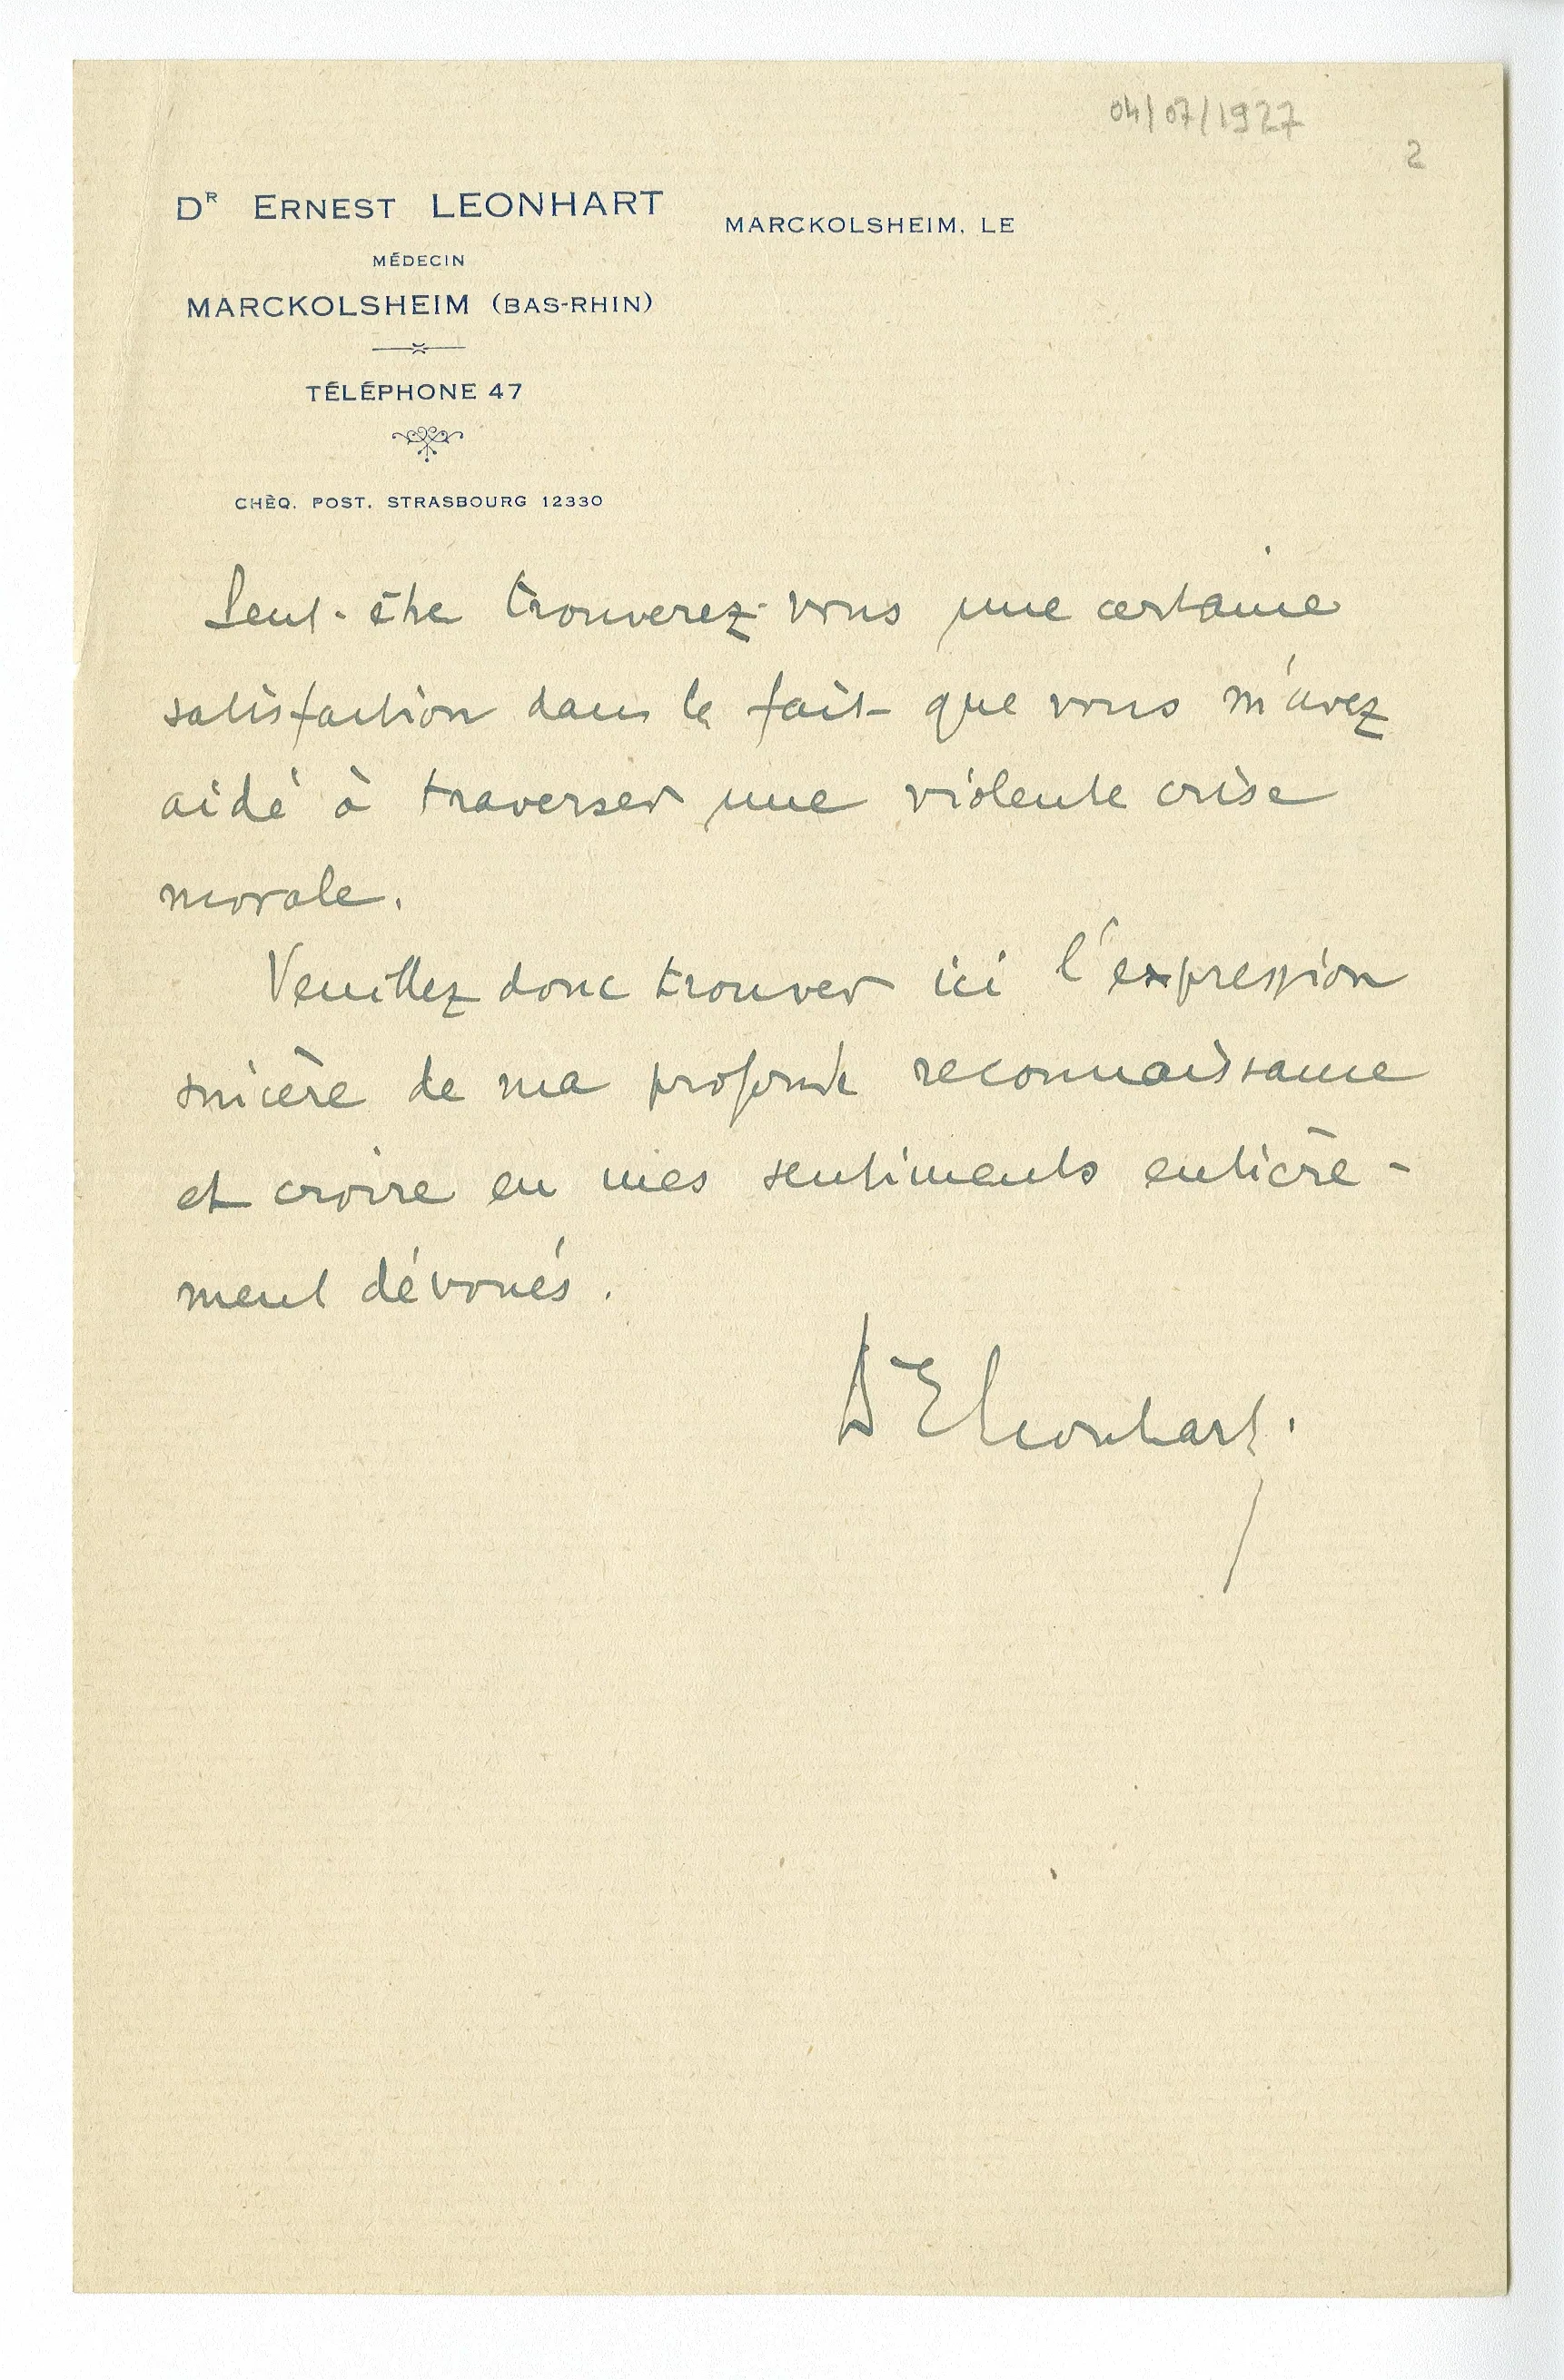 04/07/1927
2
DR ERNEST LEONHART
MARCKOLSHEIM, LE
MÉDECIN
MARCKOLSHEIM (BAS-RHIN)
TÉLÉPHONE 47
CHÈQ. POST. STRASBOURG 12330
Peut-être trouverez-vous une certaine
satisfaction dans le fait que vous m'avez
aidé à traverser une violente crise
morale.
Veuillez donc trouver ici l'expression
sincère de ma profonde reconnaissance
et croire en mes sentiments entière-
ment dévoués.
Dr E Leonhart.